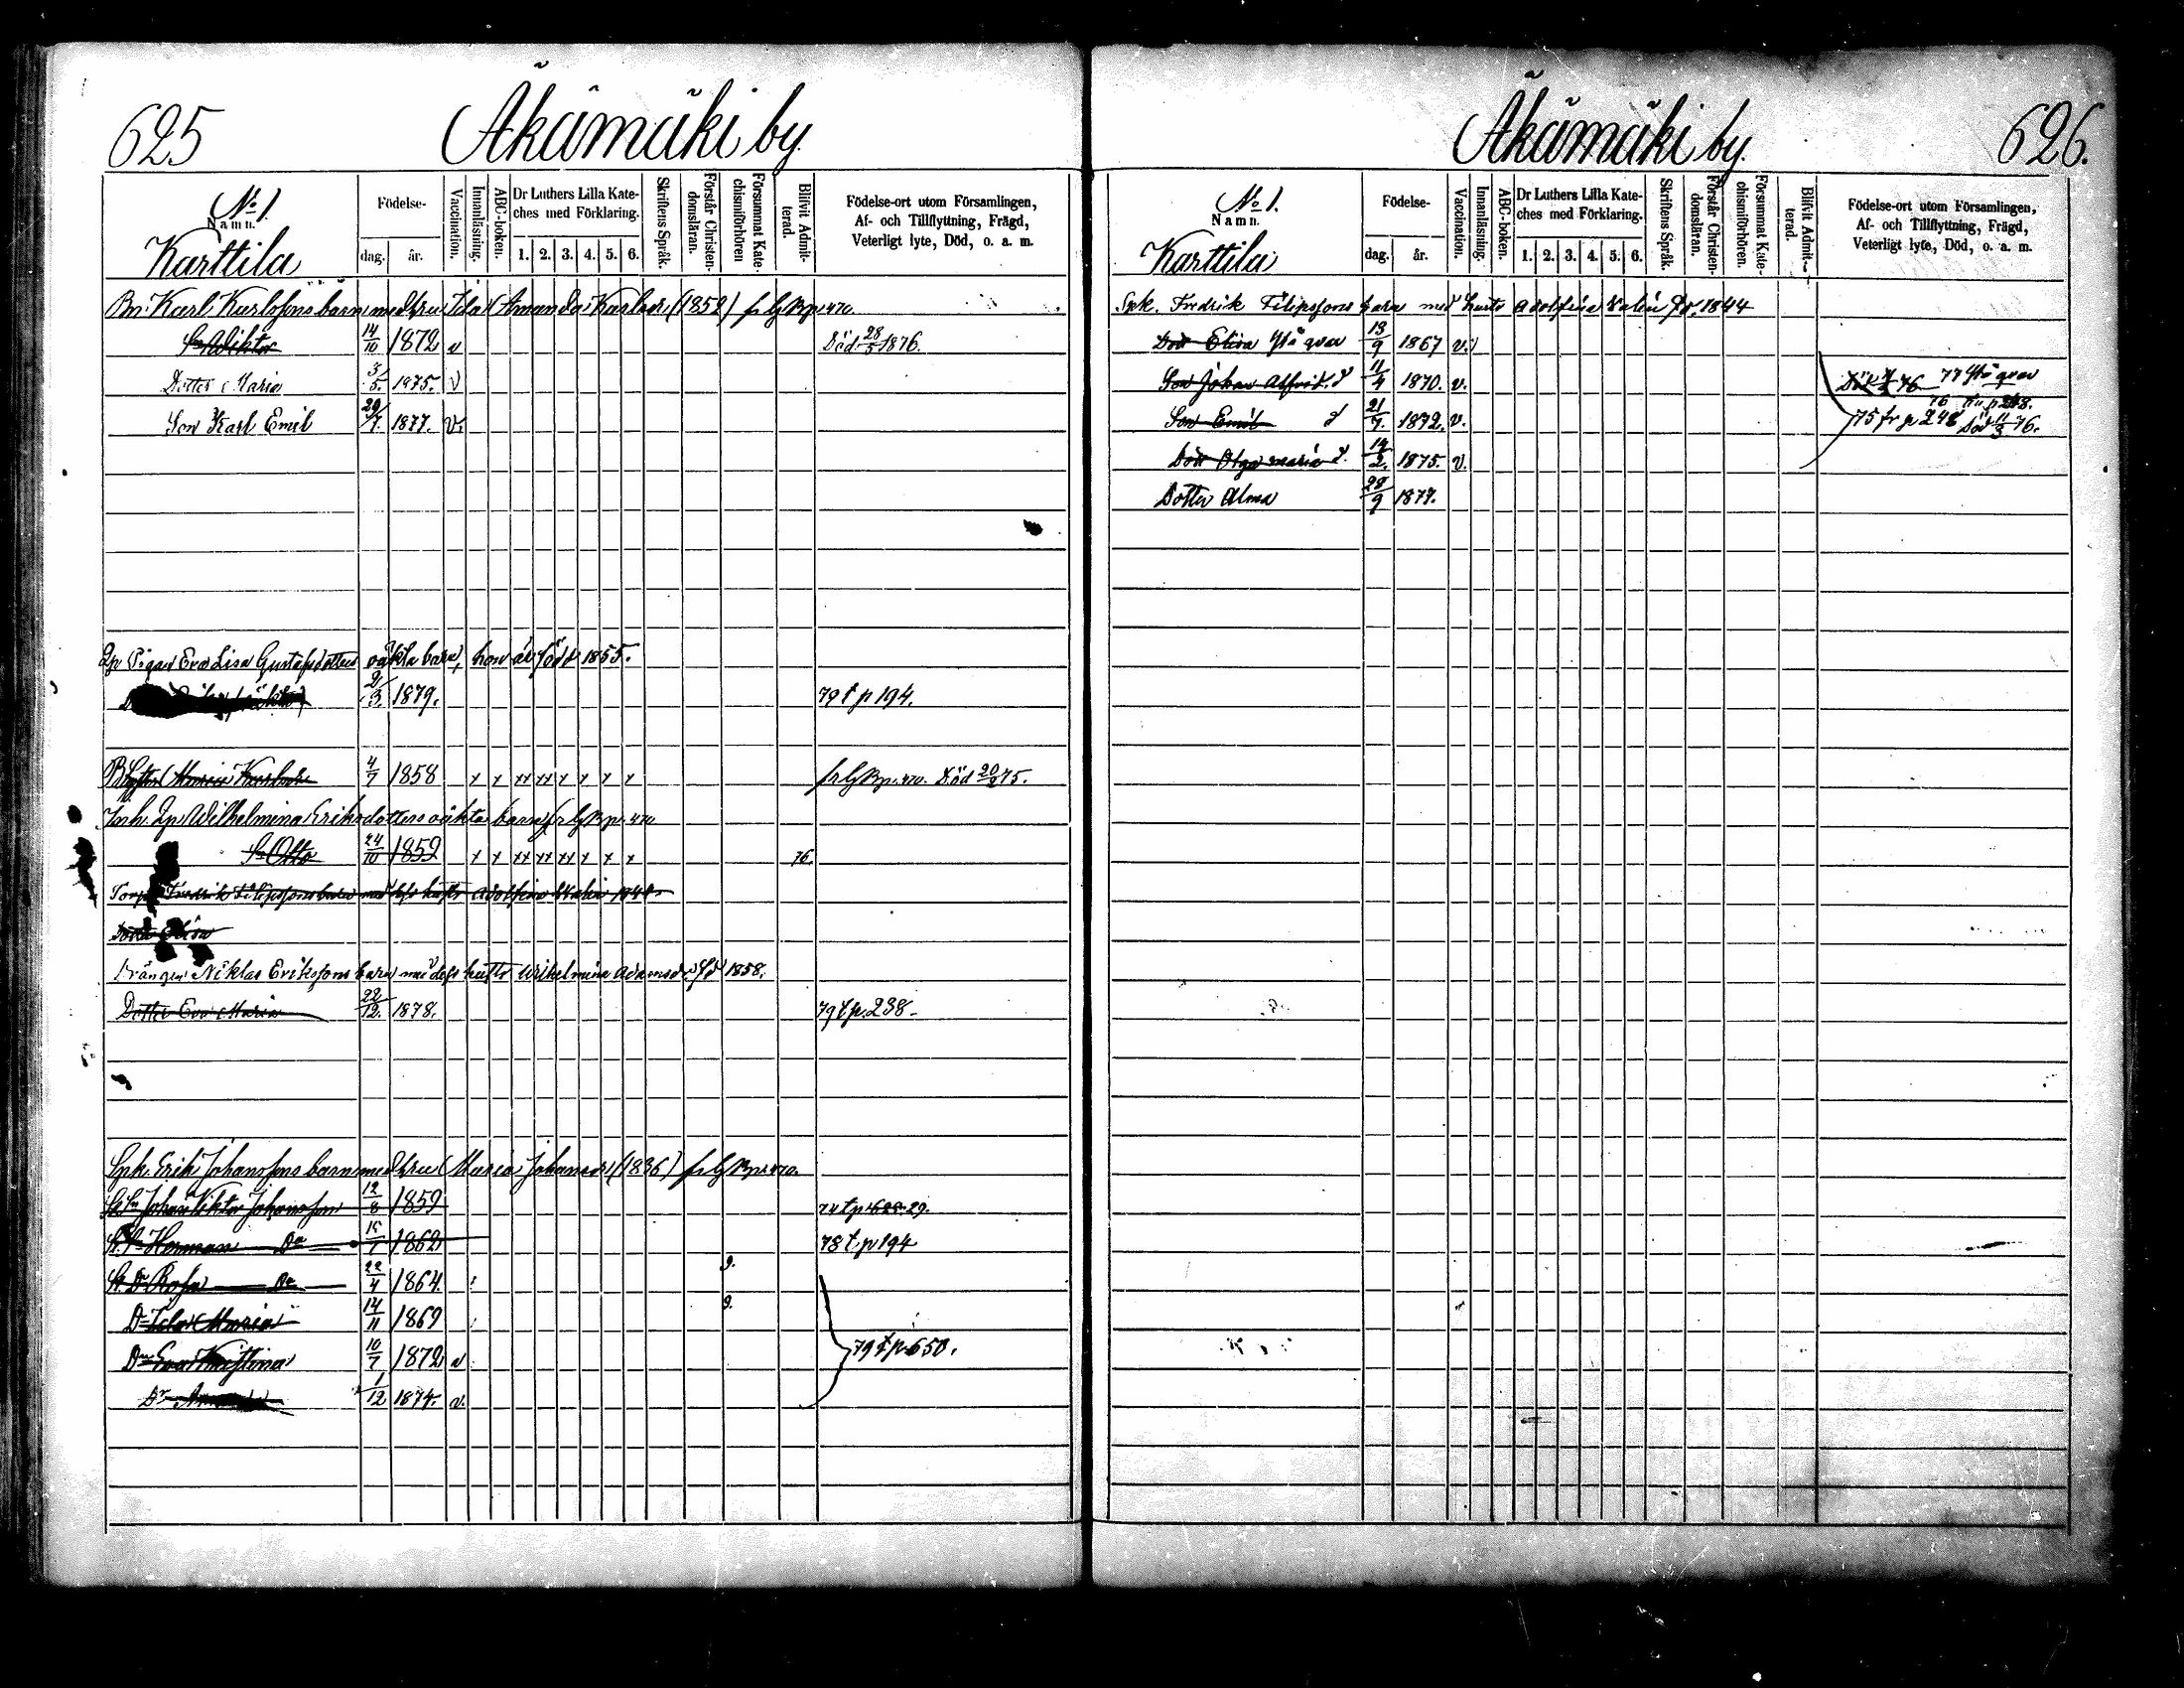 625
Äkämäki by
No 1.
Namn.
Karttila
Födelse-
dag.
år.
Vaccination.
Innanläsning.
ABC-boken.
Dr Luthers Lilla Kate-
ches med Förklaring.
1. 2. 3. 4. 5. 6.
Skriftens Språk.
Förstår Christen-
domsläran.
Försummat Kate-
chismiförhören
Blifvit Admit-
terad.
Födelse-ort utom Församlingen,
Af- och Tillflyttning, Frägd,
Veterligt lyte, Död, o. a. m.
Bn. Karl Karlssons barn med hru Ida Amanda Karlsdr (1852) fr GBp. 470.
Sn Wiktor 14/10 1872 v Död 28/5 1876.
Dotter Maria 3/5. 1875. v
Son Karl Emil 29/7. 1877. v.
Qp Pigan Eva Lisa Gustafsdotters oäkta barn, hon är född 1855.
2/3. 1879. 79 t p 194.
Maria Karlsdr 4/7 1858 x x xx xx x x x x fr GBp. 470. Död 20/2 75.
Inh. Qp. Wilhelmina Eriksdotters oäkta barn fr GBp. 470
Sn Otto 24/10 1859 x x xx xx xx x x x 76.
Fredrik Filipssons barn med dess hustr Adolfina
Dottr Elisa
Drängen Niklas Erikssons barn med dess hustr Wilhelmina Adamsdr. fd 1858.
Dotter Eva Maria 22/12. 1878. 79 t p. 238.
Spk. Erik Johanssons barn med hru Maria Johansdr (1836) fr GBp. 470.
St. Sn Johan Viktor Johansson 12/8 1859 74 t p 29.
St. Sn Herman Do 15/7 1862 78 t p 194
St. Dr Rosa Do 22/4 1864.
Dr Ida Maria 14/11 1869
Dr Eva Kristina 10/7 1872 v 79 t p 650.
Dr 1/12 1874. v.
Äkämäki by.
626.
No 1.
Namn.
Karttila
Födelse-
dag.
år.
Vaccination.
Innanläsning.
ABC-boken.
Dr Luthers Lilla Kate-
ches med Förklaring.
1. 2. 3. 4. 5. 6.
Skriftens Språk.
Förstår Christen-
domsläran.
Försummat Kate-
chismiförhören.
Blifvit Admit-
terad.
Födelse-ort utom Församlingen,
Af- och Tillflyttning, Frägd,
Veterligt lyte, Död, o. a. m.
Spk. Fredrik Filipssons barn med hustr Adolfina fd. 1844
Dott Elisa 13/9 1867 v.
Son Johan Alfrid. d 11/4 1870. v. 77
Son Emil d 21/7. 1872. v. 75 fr p 248 Död 76.
Dott Olga Maria d. 14/2. 1875. v.
Dotter Alma 28/9 1877.